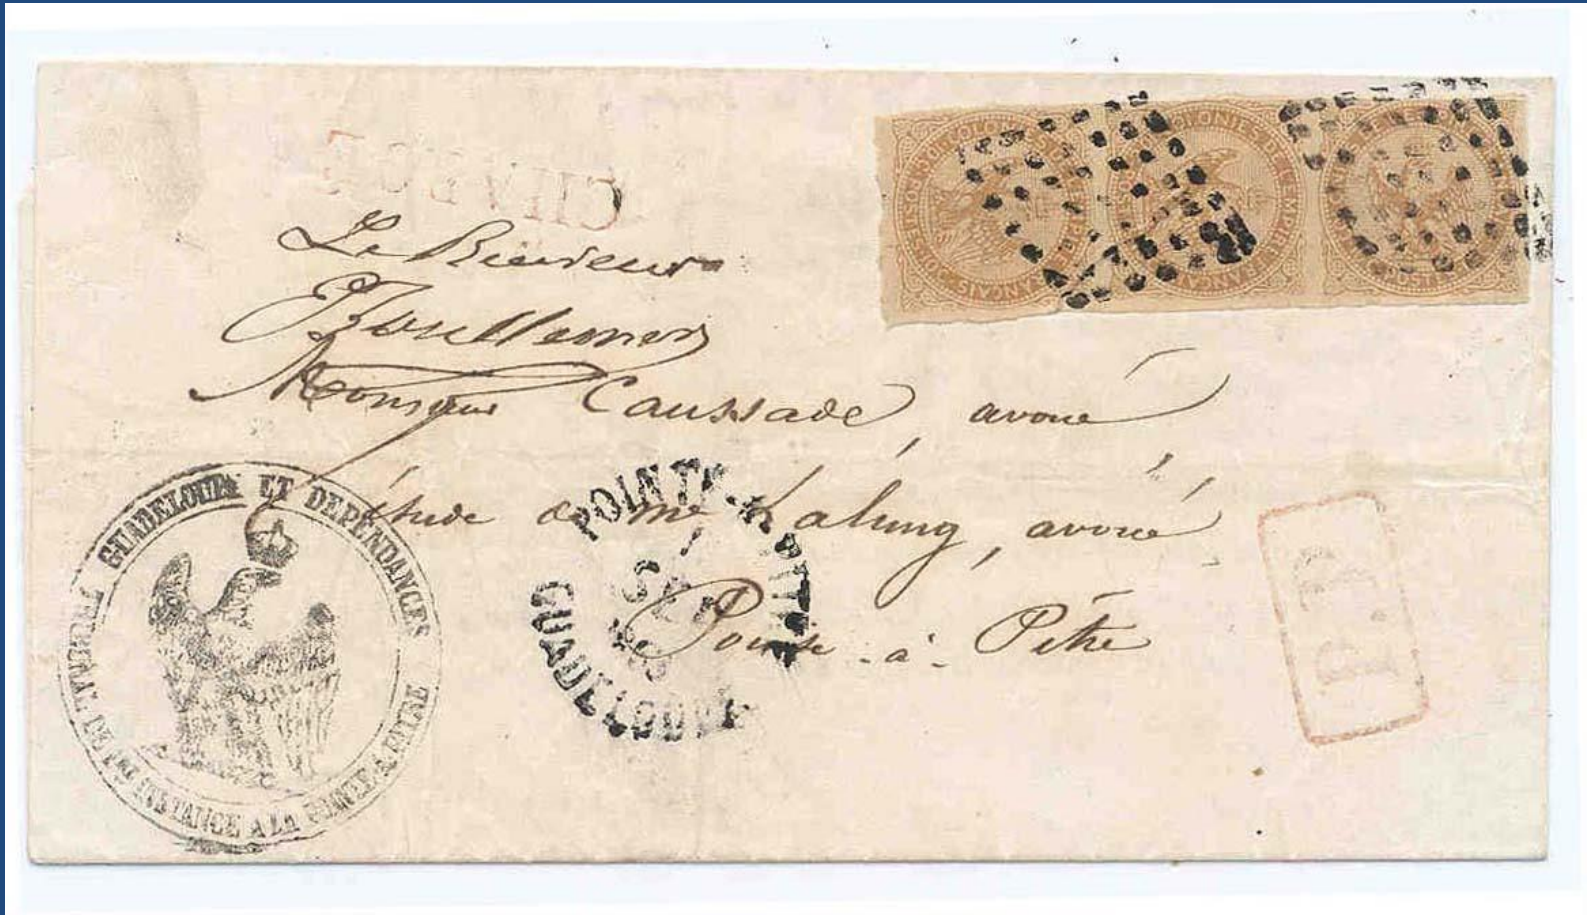 CHARGÉ
COLONIES DE L'EMPIRE FRANÇAIS
Le Receveur
Monsieur Caussade, avoué
étude de Me Lalung, avoué
Pointe-à-Pitre
POINTE-A-PITRE
1
SEPT
GUADELOUPE
P.P.
GUADELOUPE ET DEPENDANCES
TRIBUNAL DE 1ERE INSTANCE A LA POINTE-A-PITRE